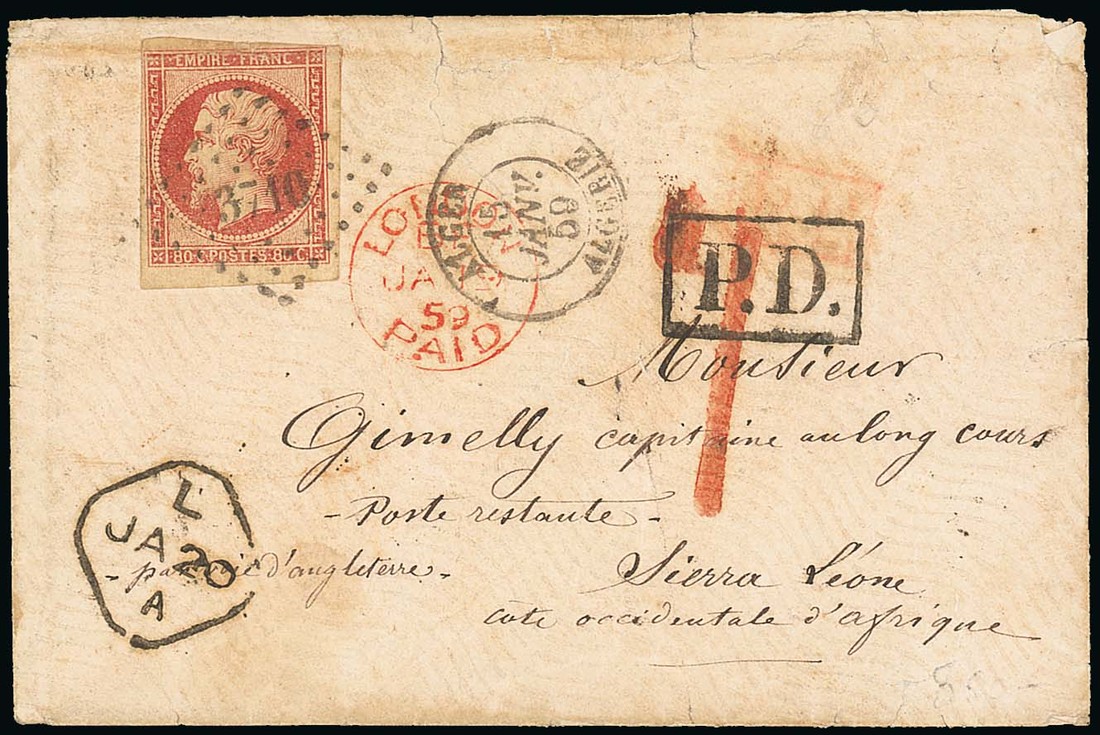 EMPIRE FRANC
3710
80 c POSTES 80 C
LONDON
JA
59
PAID
ALGER ALGERIE
15
JANV.
59
P.D.
Monsieur
Gimelly capitaine au long cours
- Poste restante -
- par voie d'angleterre -
Sierra Léone
cote occidentale d'afrique
L
JA 20
A